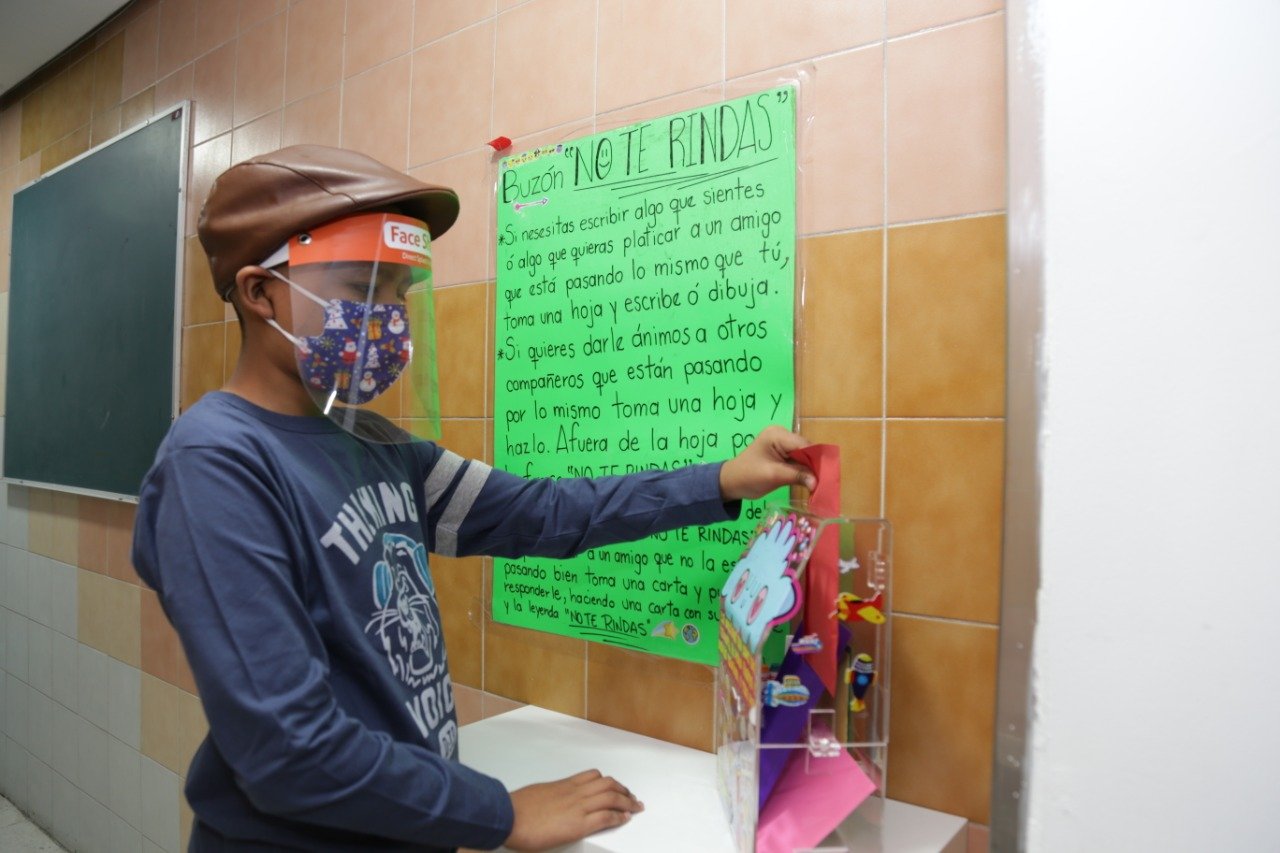 Buzón "NO TE RINDAS"
*Si nesesitas escribir algo que sientes
ó algo que quieras platicar a un amigo
que está pasando lo mismo que tú,
toma una hoja y escribe ó dibuja.
*Si quieres darle ánimos a otros
compañeros que están pasando
por lo mismo toma una hoja y
hazlo. Afuera de la hoja
"NO TE RINDAS"
NO TE RINDAS"
a un amigo que no la
pasando bien toma una carta y
responderle, haciendo una carta con
y la leyenda "NO TE RINDAS"
Face
THINKING